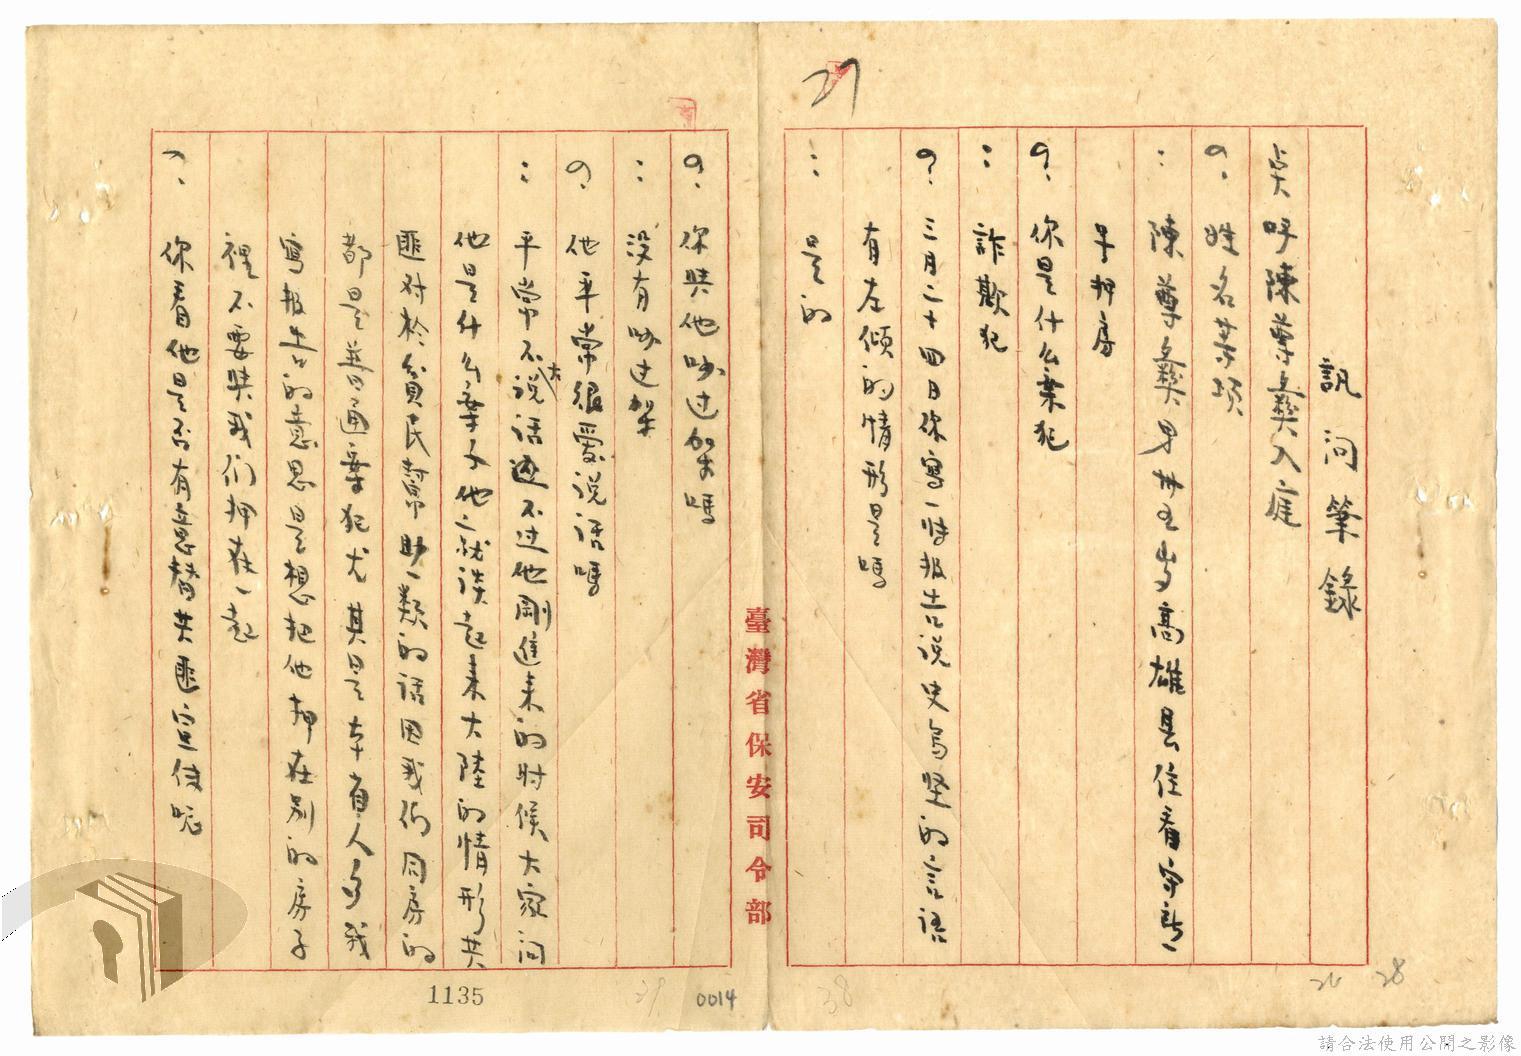 27
訊问筆錄
奌呼陳尊彝入庭
?. 姓名等項
: 陳尊彝男卅五岁高雄县住看守所一
号押房
?. 你是什么案犯
: 詐欺犯
?. 三月二十四日你寫一情报告说史与坚的言语
有左傾的情形是嗎
: 是的
臺灣省保安司令部
?. 你與他吵过架嗎
: 没有吵过架
?. 他平常很爱说话嗎
: 平常不大说话不过他剛進来的时候大家问
他是什么案子他之就谈起来大陸的情形共
匪对於貧民幫助一類的话因我们同房的
都是普通案犯尤其是本省人多我
寫报告的意思是想把他押在别的房子
裡不要與我们押在一起
?. 你看他是否有意替共匪宣传呢
1135
29
0014
38
26
28
請合法使用公開之影像